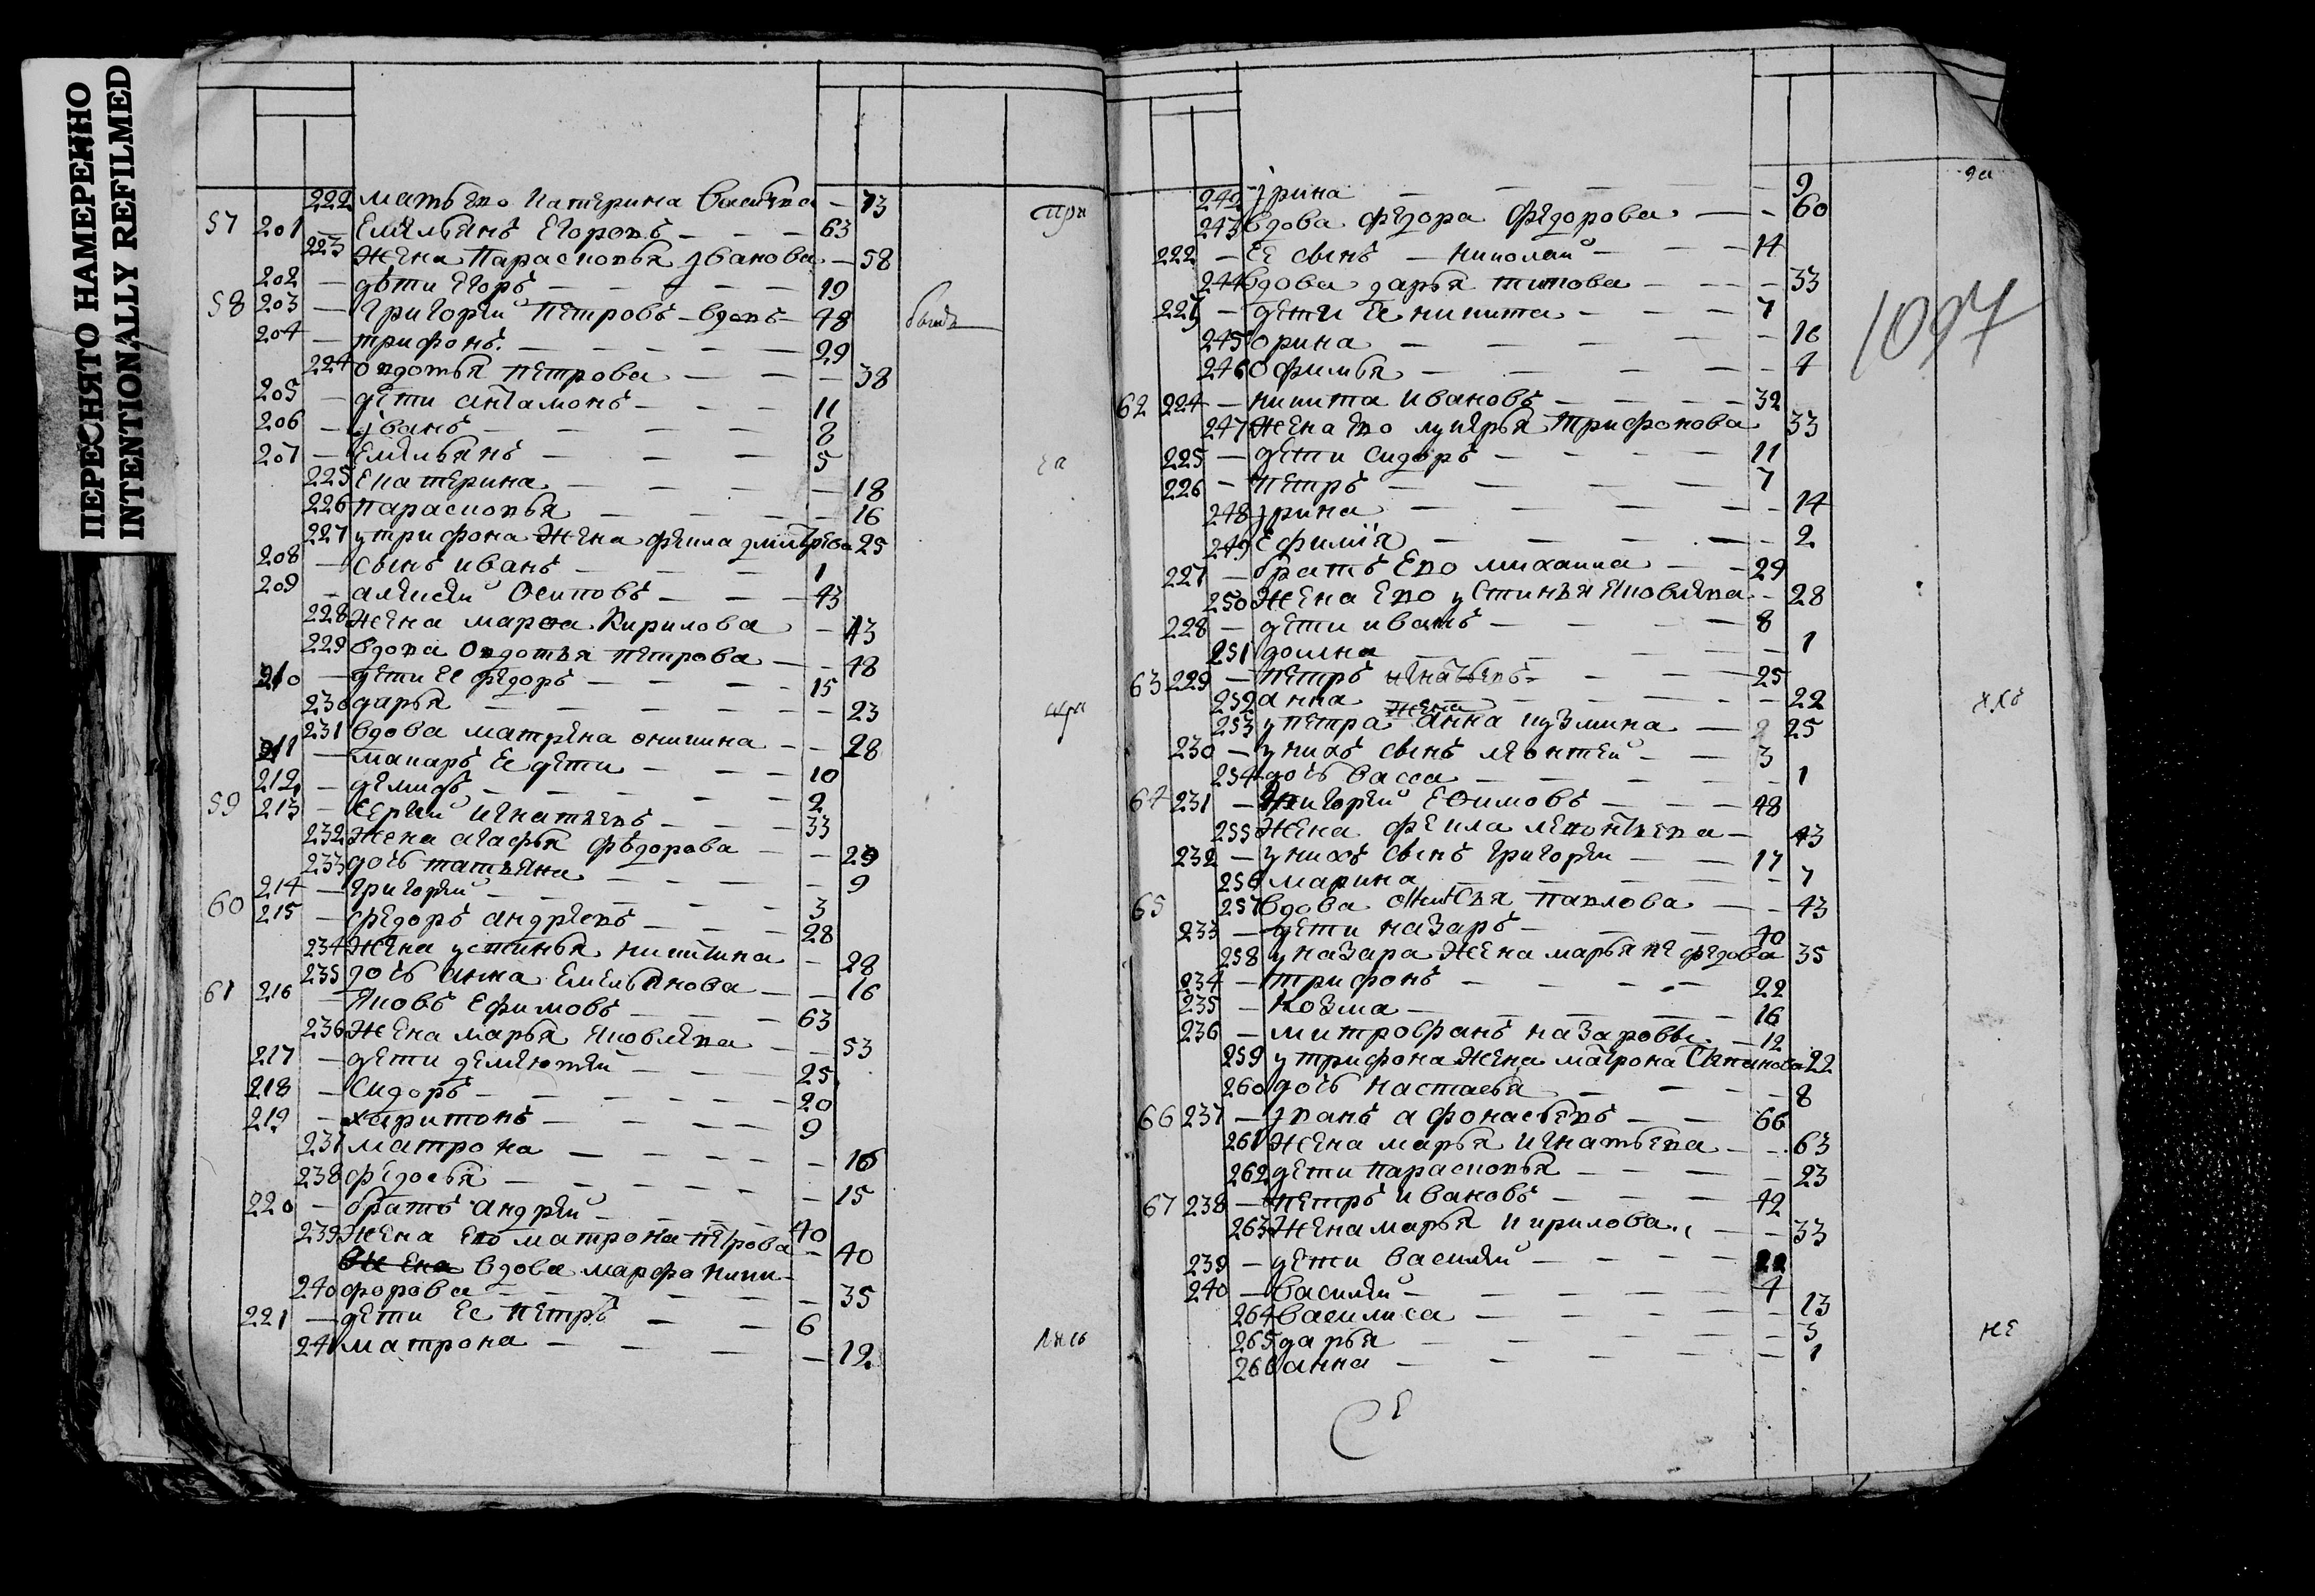 ПЕРЕСНЯТО НАМЕРЕННО
INTENTIONALLY REFILMED
222 мать ево катерина 73
57 201 — Емельянъ Егоровъ — 63
223 жена Парасковья Iванова — 58
202 — дѣти Егоръ — 19
58 203 — Григорей Петровъ — вдовъ — 48
204 — трифонъ — 29
224 овдотья петрова — 38
205 — дети антамонъ — 11
206 — iванъ — 8
207 — Емельянъ — 5
225 Екатерина — 18
226 парасковья — 16
227 у трифона жена фекла 25
208 — сынъ иванъ — 1
209 — алексей Осиповъ — 43
228 жена марфа Кирилова — 43
229 вдова овдотья петрова — 48
210 — дети ее федоръ — 15
230 дарья — 23
231 вдова матрена оникина — 28
211 — макаръ ее дети — 10
212 — демидъ — 2
59 213 — Сергей игнатьевъ — 33
232 жена агафья федорова — 29
233 дочь татьяна — 9
214 — григорей — 3
60 215 — федоръ андреевъ — 28
234 жена устинья никитина — 28
235 дочь анна Емельянова — 16
61 216 — Яковъ Ефимовъ — 63
236 жена марья яковлева — 53
217 — дети дементей — 25
218 — Сидоръ — 20
219 — харитонъ — 9
237 матрона — 16
238 федосья — 15
220 — братъ андрей — 40
239 жена ево матрона петрова — 40
жена вдова марфа ники-
240 форова — 35
221 — дети ее петръ — 6
241 матрона — 12
242 iрина — 9
243 вдова федора федорова — 60
222 — ее сынъ — николай — 14
244 вдова дарья титова — 33
223 — дети ее никита — 7
245 орина — 16
246 офимья — 4
62 224 — никита ивановъ — 32
247 жена ево лукерья трифонова 33
225 — дети сидоръ — 11
226 — петръ — 7
248 iрина — 14
249 Ефимiя — 2
227 — братъ Ево михаила — 29
250 жена Ево устинья яковлева — 28
228 — дети иванъ — 8
251 домна — 1
63 229 — петръ игнатьевъ — 25
252 анна — 22
253 у петра жена анна кузмина — 25
230 — у нихъ сынъ леонтей — 3
254 дочь васса — 1
64 231 — григорей Ефимовъ — 48
255 жена фекла леонтьева — 43
232 — у нихъ сынъ григорей — 17
256 марина — 7
65 257 вдова павлова — 43
233 — дети назаръ — 40
258 у назара жена марья нефедова 35
234 — трифонъ — 22
235 — Козма — 16
236 — митрофанъ назаровы — 12
259 у трифона жена матрона Степанова 22
260 дочь настасья — 8
66 237 — iванъ афонасьевъ — 66
261 жена марья игнатьева — 63
262 дети парасковья — 23
67 238 — петръ ивановъ — 42
263 жена марья кирилова — 33
239 — дети василей — 22
240 — василей — 4
264 василиса — 13
265 дарья — 3
266 анна — 1
1097